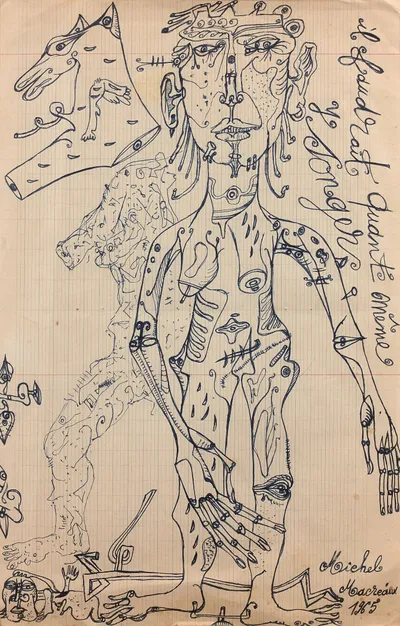 il faudrait quant même
y songer
Michel
Macréau
1965